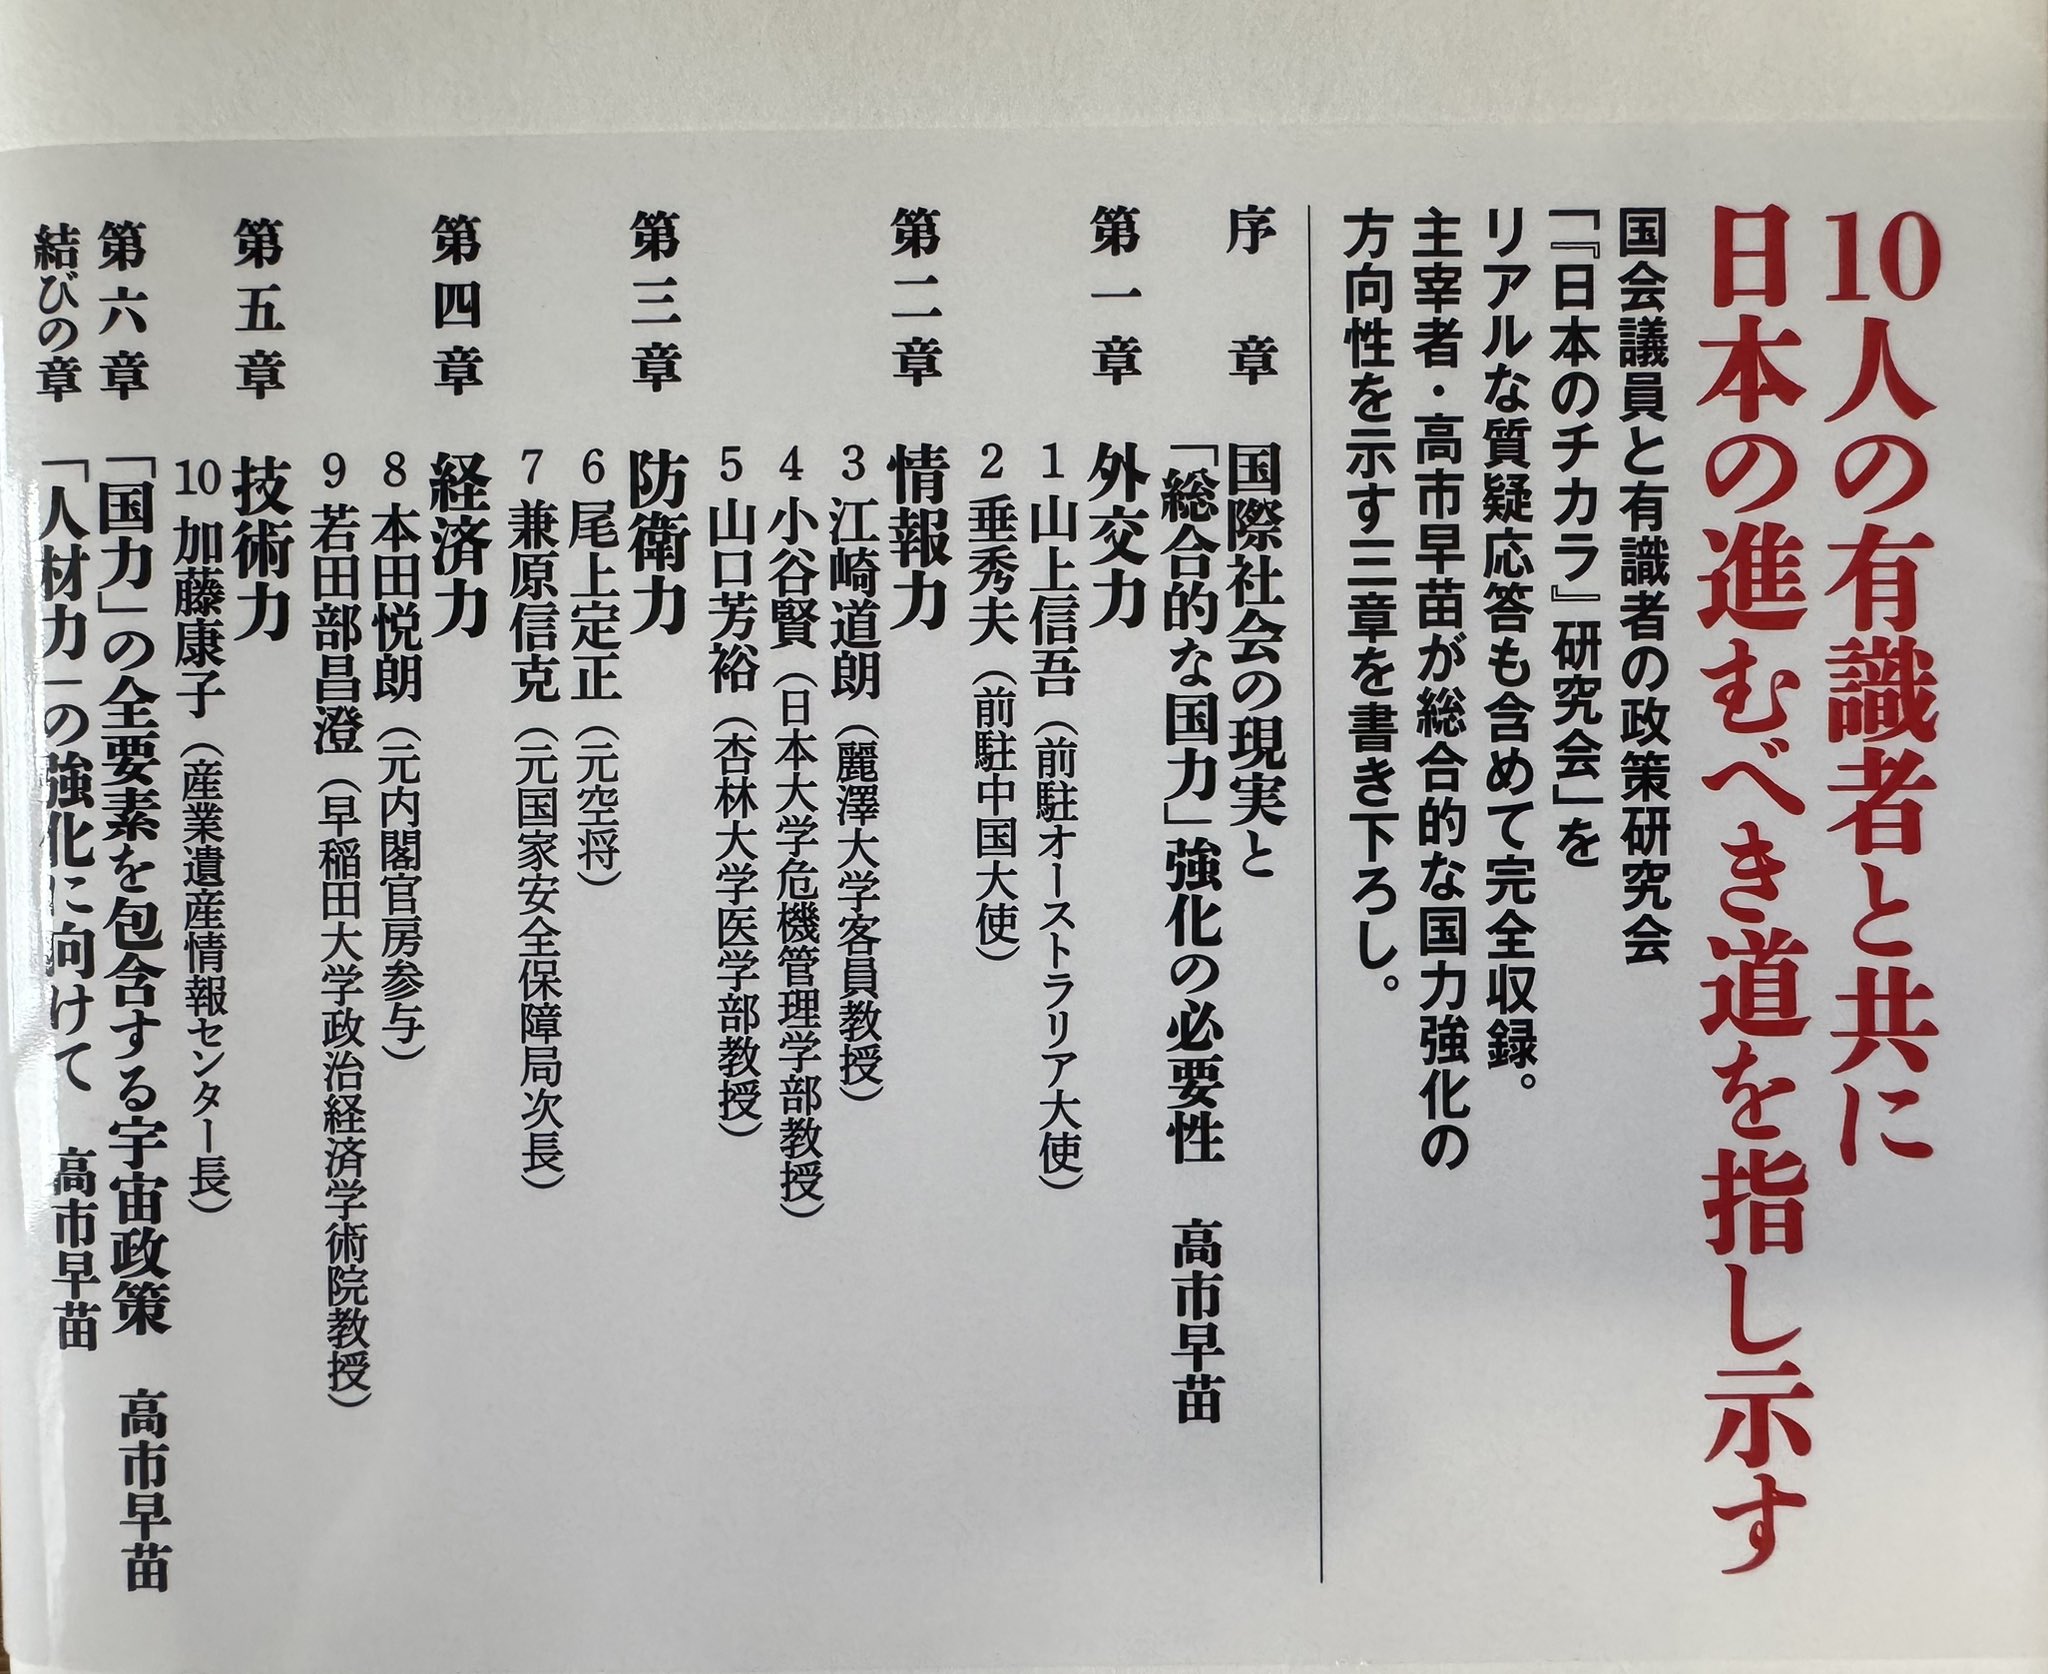 10人の有識者と共に
日本の進むべき道を指し示す
国会議員と有識者の政策研究会
「『日本のチカラ』研究会」を
リアルな質疑応答も含めて完全収録。
主宰者・高市早苗が総合的な国力強化の
方向性を示す三章を書き下ろし。
序章 国際社会の現実と
「総合的な国力」強化の必要性 高市早苗
第一章 外交力
1 山上信吾（前駐オーストラリア大使）
2 垂秀夫（前駐中国大使）
第二章 情報力
3 江崎道朗（麗澤大学客員教授）
4 小谷賢（日本大学危機管理学部教授）
5 山口芳裕（杏林大学医学部教授）
第三章 防衛力
6 尾上定正（元空将）
7 兼原信克（元国家安全保障局次長）
第四章 経済力
8 本田悦朗（元内閣官房参与）
9 若田部昌澄（早稲田大学政治経済学術院教授）
第五章 技術力
10 加藤康子（産業遺産情報センター長）
第六章 「国力」の全要素を包含する宇宙政策 高市早苗
結びの章 「人材力」の強化に向けて 高市早苗